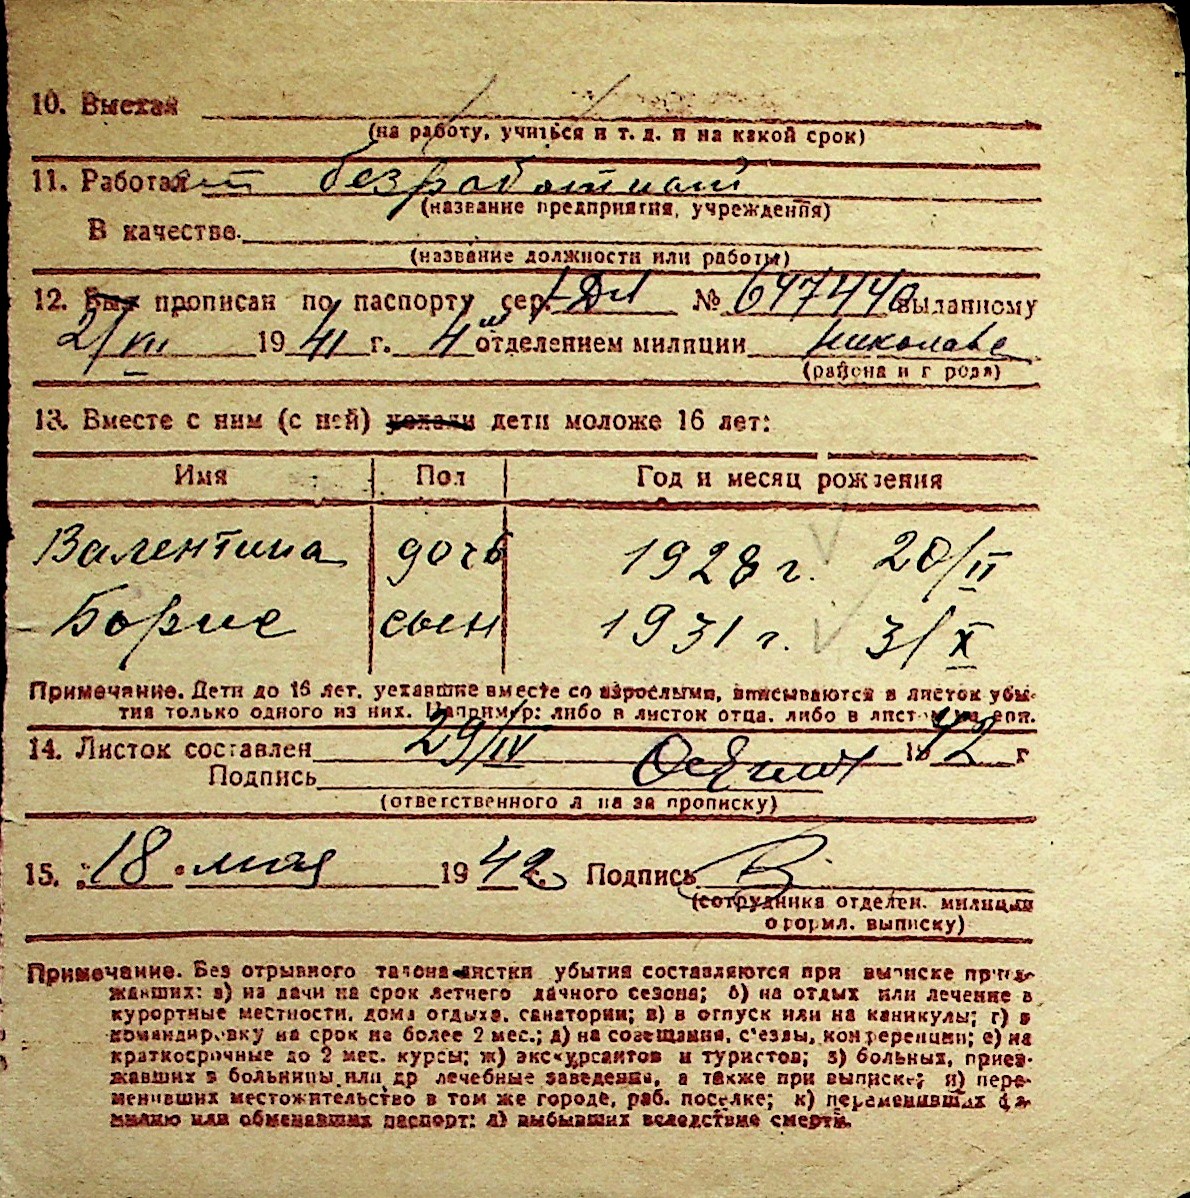 10. Выехал
(на работу, учиться и т. д. и на какой срок)
11. Работает безработный
(название предприятия, учреждения)
В качестве
(название должности или работы)
12. Был прописан по паспорту сер. № 647440 выданному
21/VII 1941 г. 4 отделением милиции Николаев
(района и города)
13. Вместе с ним (с ней) уехали дети моложе 16 лет:
Имя Пол Год и месяц рождения
Валентина дочь 1928 г. 20/II
Борис сын 1931 г. 3/X
Примечание. Дети до 16 лет, уехавшие вместе со взрослыми, вписываются в листок убы-
тия только одного из них. Например: либо в листок отца, либо в листок матери.
14. Листок составлен 29/IV 1942 г
Подпись
(ответственного лица за прописку)
15. "18" мая 1942 г. Подпись
(сотрудника отделен. милиции
оформл. выписку)
Примечание. Без отрывного талона листки убытия составляются при выписке приез-
жавших: а) из дачи на срок летнего дачного сезона; б) на отдых или лечение в
курортные местности, дома отдыха, санатории; в) в отпуск или на каникулы; г) в
командировку на срок не более 2 мес.; д) на совещания, с'езды, конференции; е) на
краткосрочные до 2 мес. курсы; ж) экскурсантов и туристов; з) больных, приез-
жавших в больницы или др лечебные заведения, а также при выписке; и) пере-
менивших местожительство в том же городе, раб. поселке; к) переменивших фа-
милию или обменявших паспорт; л) выбывших вследствие смерти.